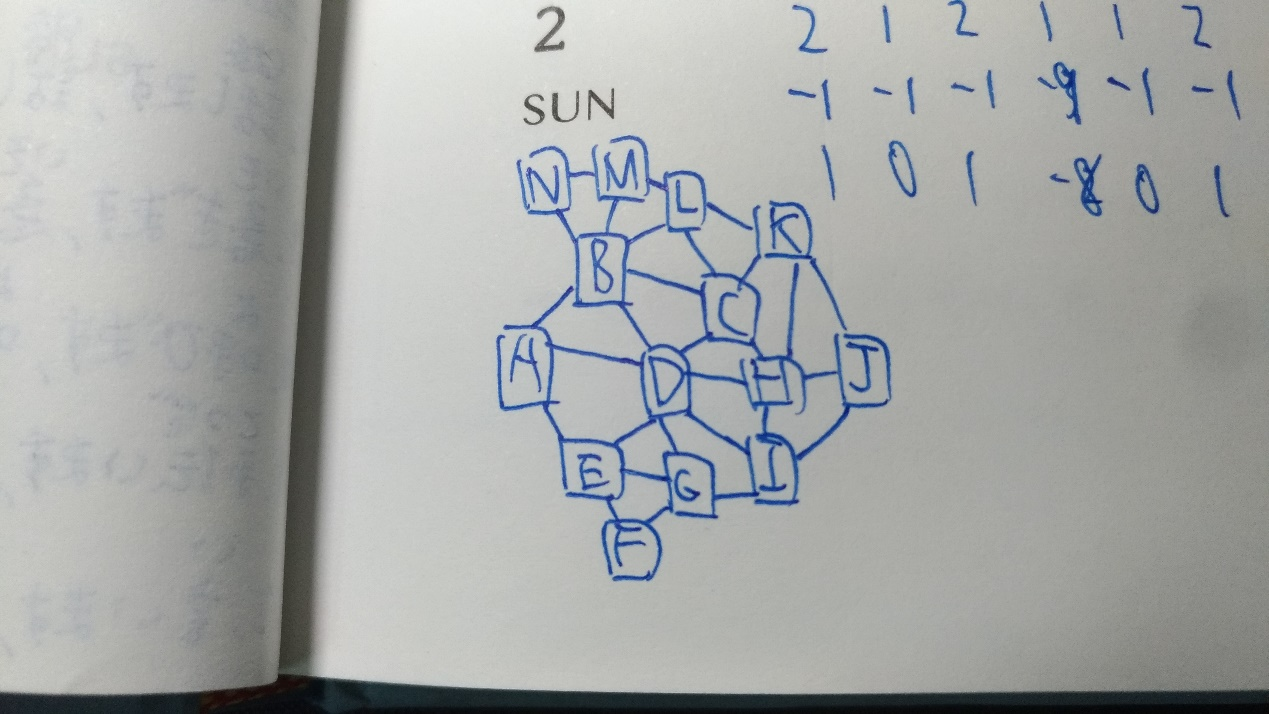 2
SUN
2 1 2 1 1 2
-1 -1 -1 -1 -1
1 0 1 0 1
N M L K
B C
A D H J
E G I
F